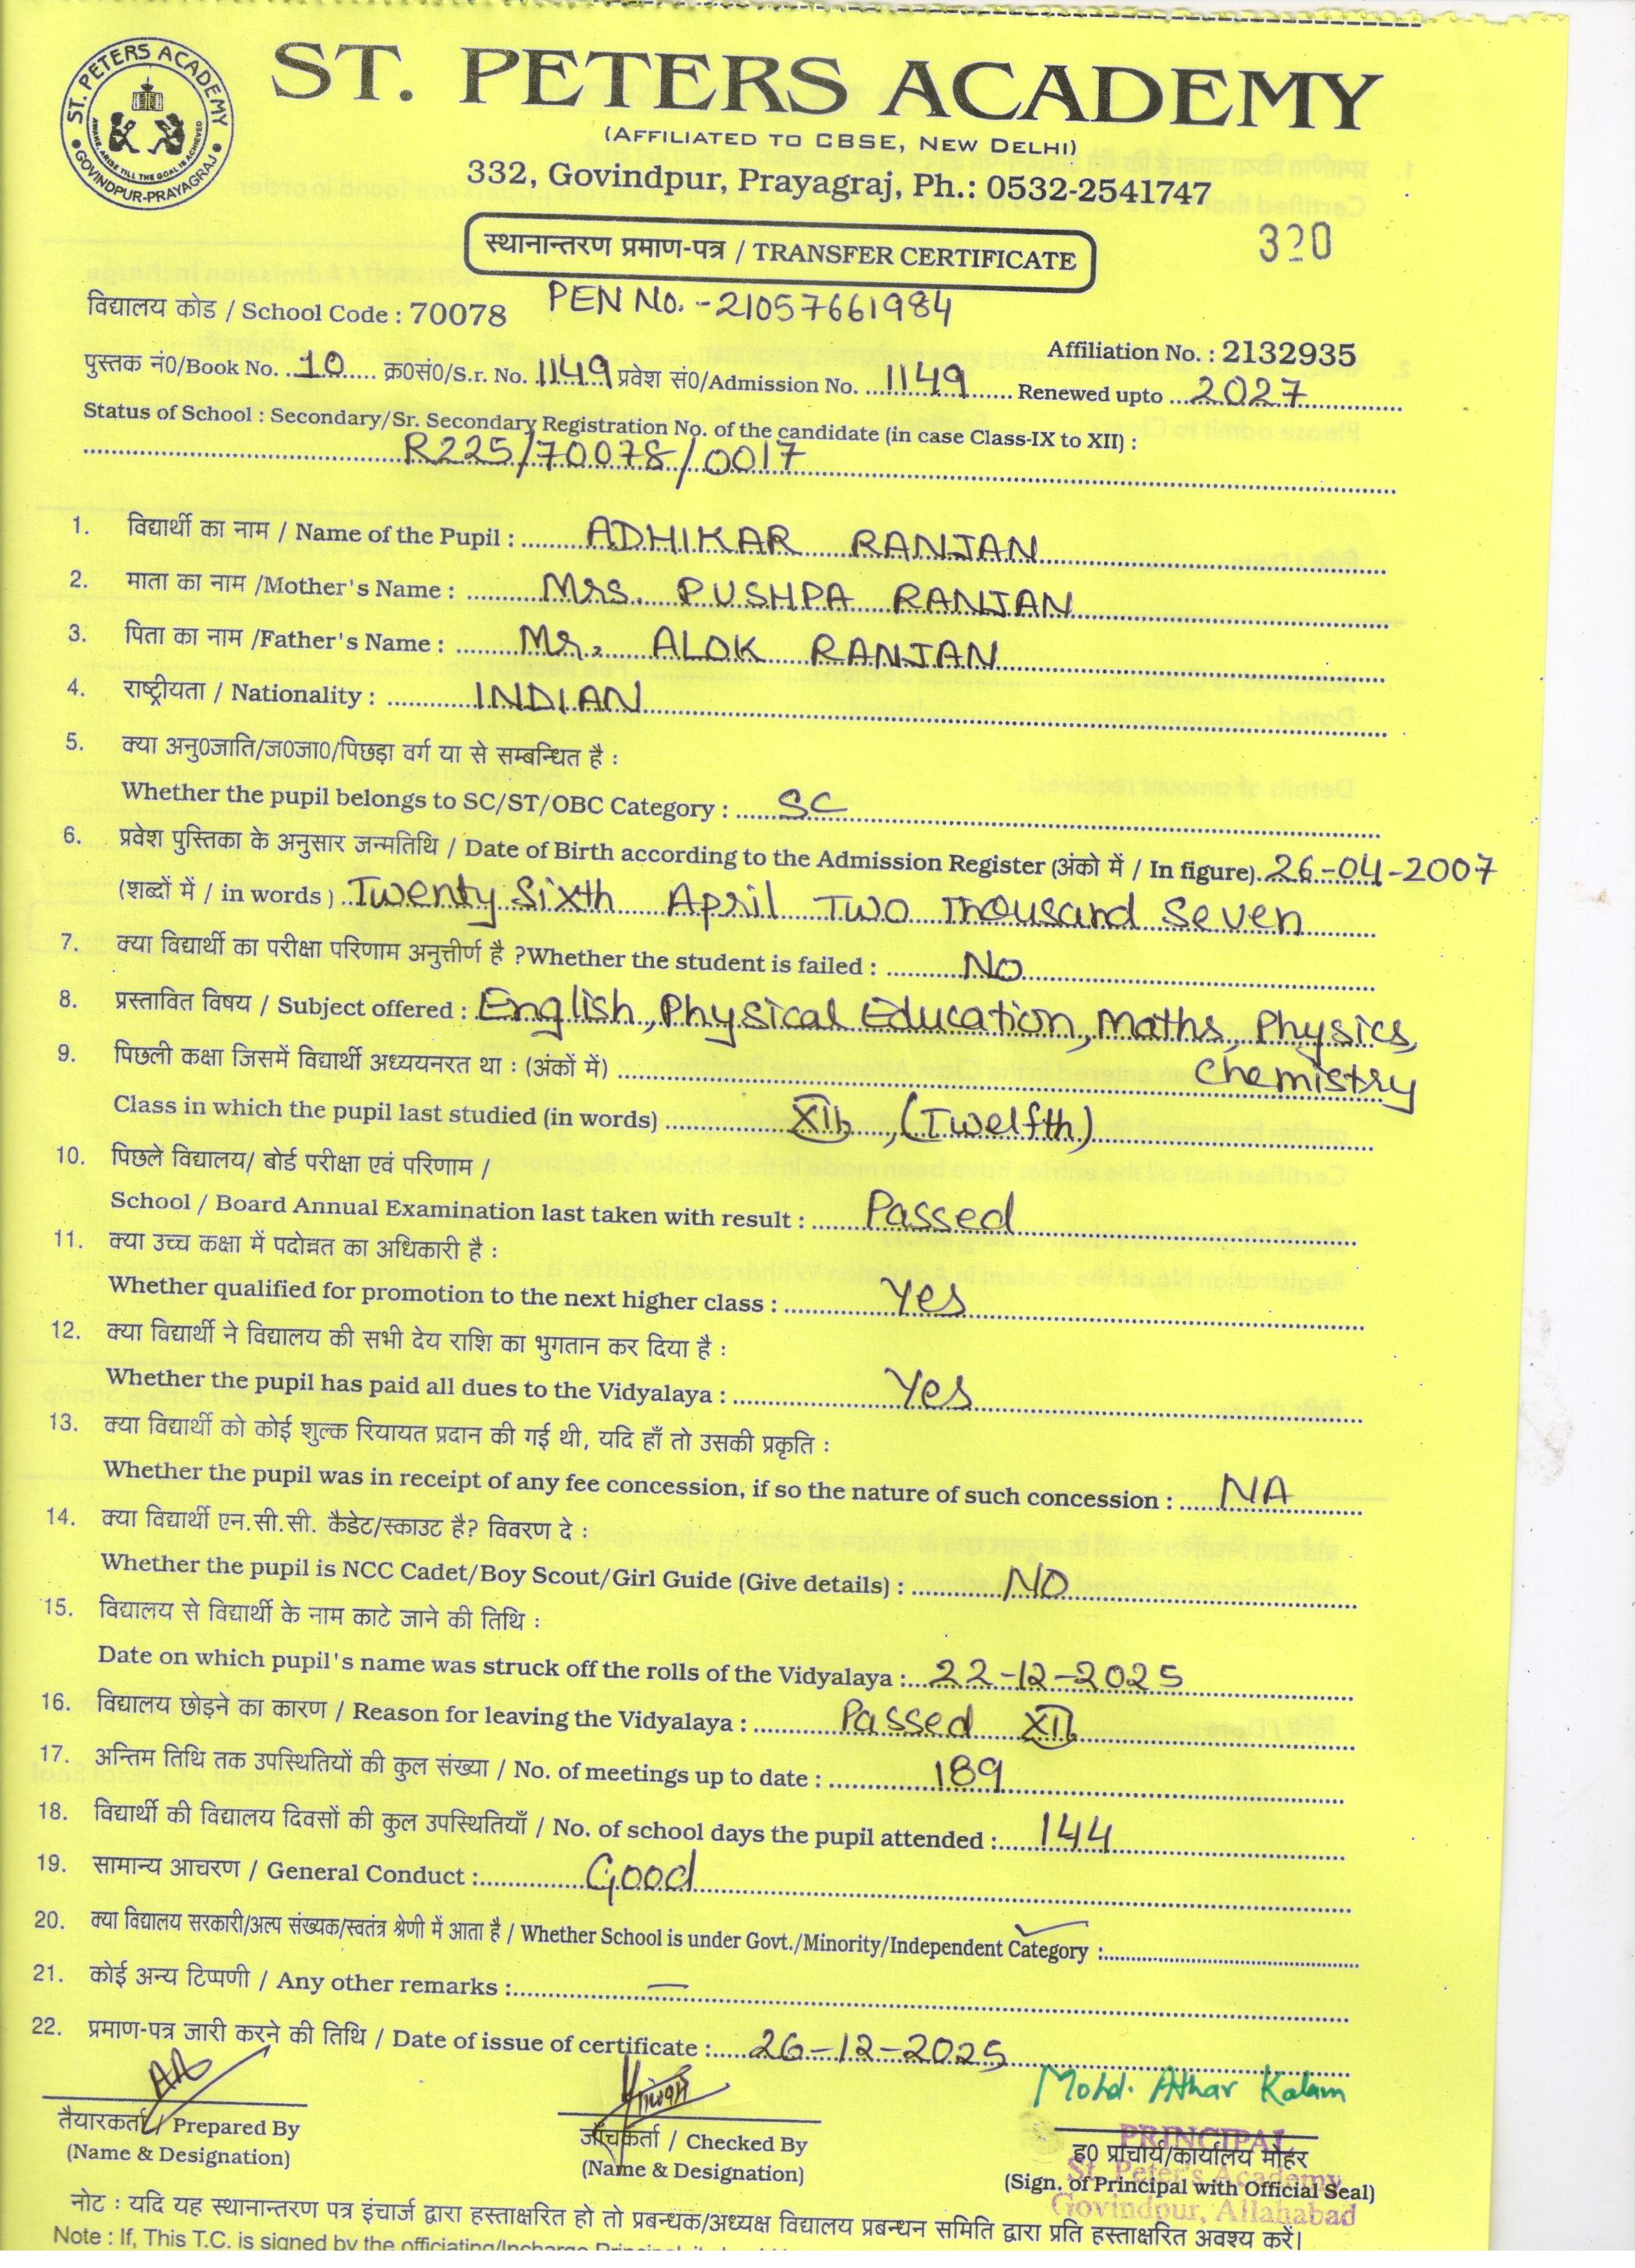 ST. PETERS ACADEMY
GOVINDPUR-PRAYAGRAJ
AWAKE, ARISE TILL THE GOAL IS ACHIEVED
ST. PETERS ACADEMY
(AFFILIATED TO CBSE, NEW DELHI)
332, Govindpur, Prayagraj, Ph.: 0532-2541747
स्थानान्तरण प्रमाण-पत्र / TRANSFER CERTIFICATE
320
विद्यालय कोड / School Code : 70078 PEN No. -21057661984
Affiliation No. : 2132935
पुस्तक नं0/Book No. 10 क्र0सं0/S.r. No. 1149 प्रवेश सं0/Admission No. 1149 Renewed upto 2027
Status of School : Secondary/Sr. Secondary Registration No. of the candidate (in case Class-IX to XII) :
R225/70078/0017
1. विद्यार्थी का नाम / Name of the Pupil : ADHIKAR RANJAN
2. माता का नाम /Mother's Name : Mrs. PUSHPA RANJAN
3. पिता का नाम /Father's Name : Mr. ALOK RANJAN
4. राष्ट्रीयता / Nationality : INDIAN
5. क्या अनु0जाति/ज0जा0/पिछड़ा वर्ग या से सम्बन्धित है :
Whether the pupil belongs to SC/ST/OBC Category : SC
6. प्रवेश पुस्तिका के अनुसार जन्मतिथि / Date of Birth according to the Admission Register (अंको में / In figure). 26-04-2007
(शब्दों में / in words) Twenty Sixth April Two Thousand Seven
7. क्या विद्यार्थी का परीक्षा परिणाम अनुत्तीर्ण है ?Whether the student is failed : No
8. प्रस्तावित विषय / Subject offered : English, Physical Education, Maths, Physics,
Chemistry
9. पिछली कक्षा जिसमें विद्यार्थी अध्ययनरत था : (अंकों में)
Class in which the pupil last studied (in words) XIIth, (Twelfth)
10. पिछले विद्यालय/ बोर्ड परीक्षा एवं परिणाम /
School / Board Annual Examination last taken with result : Passed
11. क्या उच्च कक्षा में पदोन्नत का अधिकारी है :
Whether qualified for promotion to the next higher class : Yes
12. क्या विद्यार्थी ने विद्यालय की सभी देय राशि का भुगतान कर दिया है :
Whether the pupil has paid all dues to the Vidyalaya : Yes
13. क्या विद्यार्थी को कोई शुल्क रियायत प्रदान की गई थी, यदि हाँ तो उसकी प्रकृति :
Whether the pupil was in receipt of any fee concession, if so the nature of such concession : NA
14. क्या विद्यार्थी एन.सी.सी. कैडेट/स्काउट है? विवरण दे :
Whether the pupil is NCC Cadet/Boy Scout/Girl Guide (Give details) : NO
15. विद्यालय से विद्यार्थी के नाम काटे जाने की तिथि :
Date on which pupil's name was struck off the rolls of the Vidyalaya : 22-12-2025
16. विद्यालय छोड़ने का कारण / Reason for leaving the Vidyalaya : Passed XIIth
17. अन्तिम तिथि तक उपस्थितियों की कुल संख्या / No. of meetings up to date : 189
18. विद्यार्थी की विद्यालय दिवसों की कुल उपस्थितियाँ / No. of school days the pupil attended : 144
19. सामान्य आचरण / General Conduct : Good
20. क्या विद्यालय सरकारी/अल्प संख्यक/स्वतंत्र श्रेणी में आता है / Whether School is under Govt./Minority/Independent Category :
21. कोई अन्य टिप्पणी / Any other remarks : —
22. प्रमाण-पत्र जारी करने की तिथि / Date of issue of certificate : 26-12-2025
Mohd. Athar Kalam
तैयारकर्ता / Prepared By
(Name & Designation)
जाँचकर्ता / Checked By
(Name & Designation)
PRINCIPAL
ह0 प्राचार्य/कार्यालय मोहर
St. Peter's Academy
(Sign. of Principal with Official Seal)
Govindpur, Allahabad
नोट : यदि यह स्थानान्तरण पत्र इंचार्ज द्वारा हस्ताक्षरित हो तो प्रबन्धक/अध्यक्ष विद्यालय प्रबन्धन समिति द्वारा प्रति हस्ताक्षरित अवश्य करें।
Note : If, This T.C. is signed by the officiating/Incharge